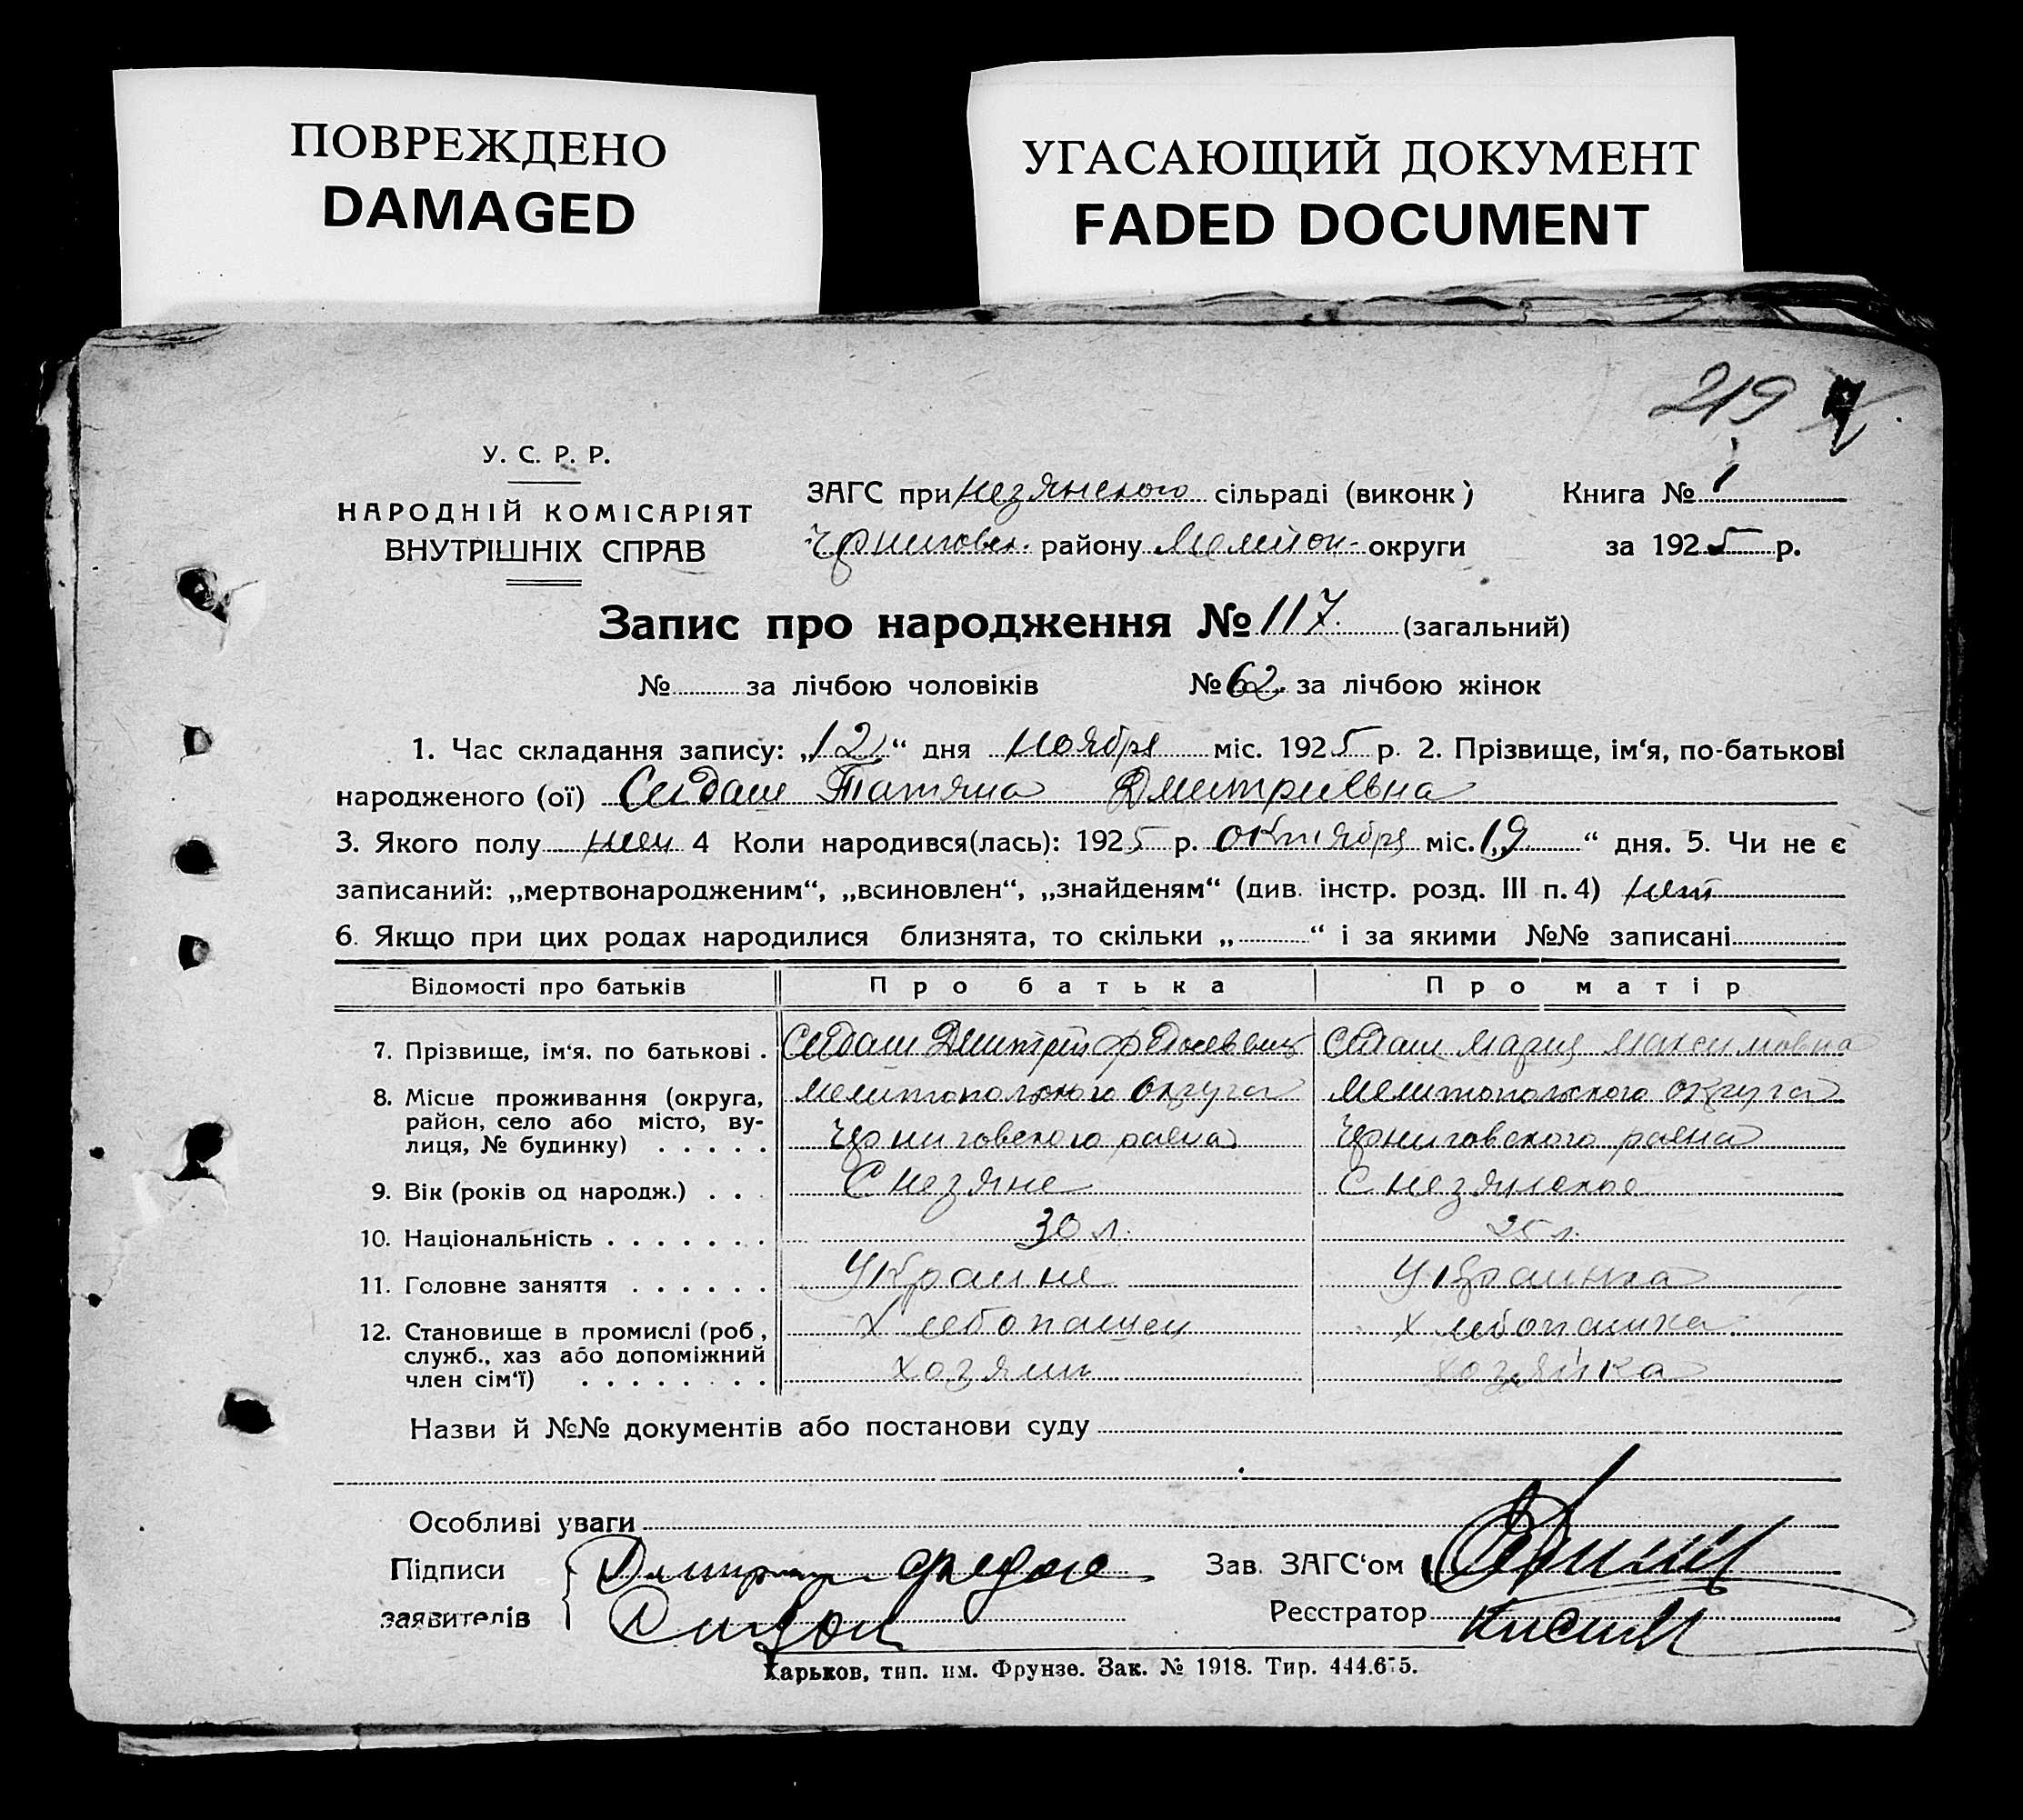 ПОВРЕЖДЕНО
DAMAGED
УГАСАЮЩИЙ ДОКУМЕНТ
FADED DOCUMENT
219
У. С. Р. Р.
НАРОДНІЙ КОМІСАРІЯТ
ВНУТРІШНІХ СПРАВ
ЗАГС при незянского сільраді (виконк)
Черниговск. району Мелитоп- округи
Книга № 1
за 1925 р.
Запис про народження № 117. (загальний)
№ за лічбою чоловіків № 62. за лічбою жінок
1. Час складання запису: „12“ дня ноября міс. 1925 р. 2. Прізвище, ім‘я, по-батькові
народженого (ої) Сидаш Татяна Дмитриевна
3. Якого полу жен 4 Коли народився(лась): 1925 р. октября міс. 19 “ дня. 5. Чи не є
записаний: „мертвонародженим“, „всиновлен“, „знайденям“ (див. інстр. розд. III п. 4) нет
6. Якщо при цих родах народилися близнята, то скільки „ “ і за якими №№ записані
Відомості про батьків Про батька Про матір
7. Прізвище, ім‘я, по батькові . Сидаш Дмитрий Сидаш Мария Максимовна
8. Місце проживання (округа, Мелитопольского округа Мелитопольского округа
район, село або місто, ву-
лиця, № будинку) . . . . . Черниговского раена Черниговского раена
9. Вік (років од народж.) . . . С незяне С незянское
10. Національність . . . . . . . 30 л. 25 л.
11. Головне заняття . . . . . . Украине Украинка
12. Становище в промислі (роб, Хлебопашец хлебопашка
служб., хаз або допоміжний
член сім‘ї) . . . . . . . . хозяин хозяйка
Назви й №№ документів або постанови суду
Особливі уваги
Підписи
заявителів
Зав. ЗАГС‘ом
Реєстратор
Харьков, тип. им. Фрунзе. Зак. № 1918. Тир. 444.675.